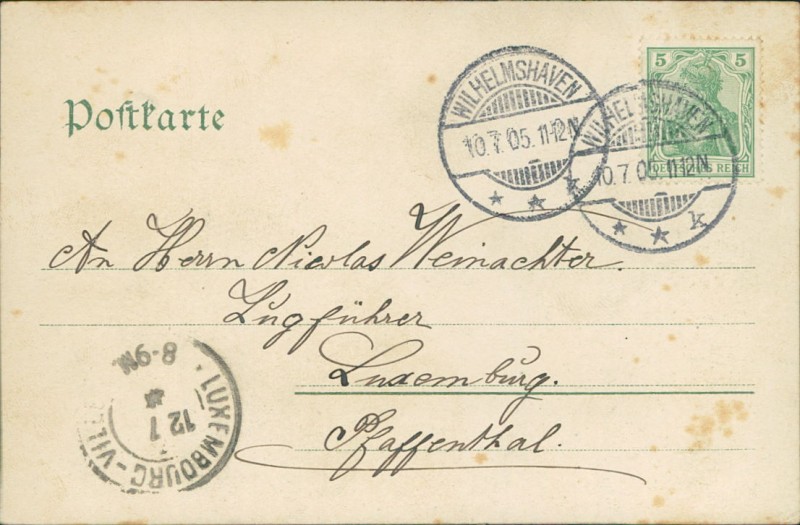 Postkarte
WILHELMSHAVEN
10.7.05.11-12N
* * k
WILHELMSHAVEN
10.7.05.11-12N
* * k
5 5
DEUTSCHES REICH
An Herrn Nicolas Weinachter.
Zugführer
Luxemburg.
Pfaffenthal.
LUXEMBOURG-VILLE
12 7
8-9M